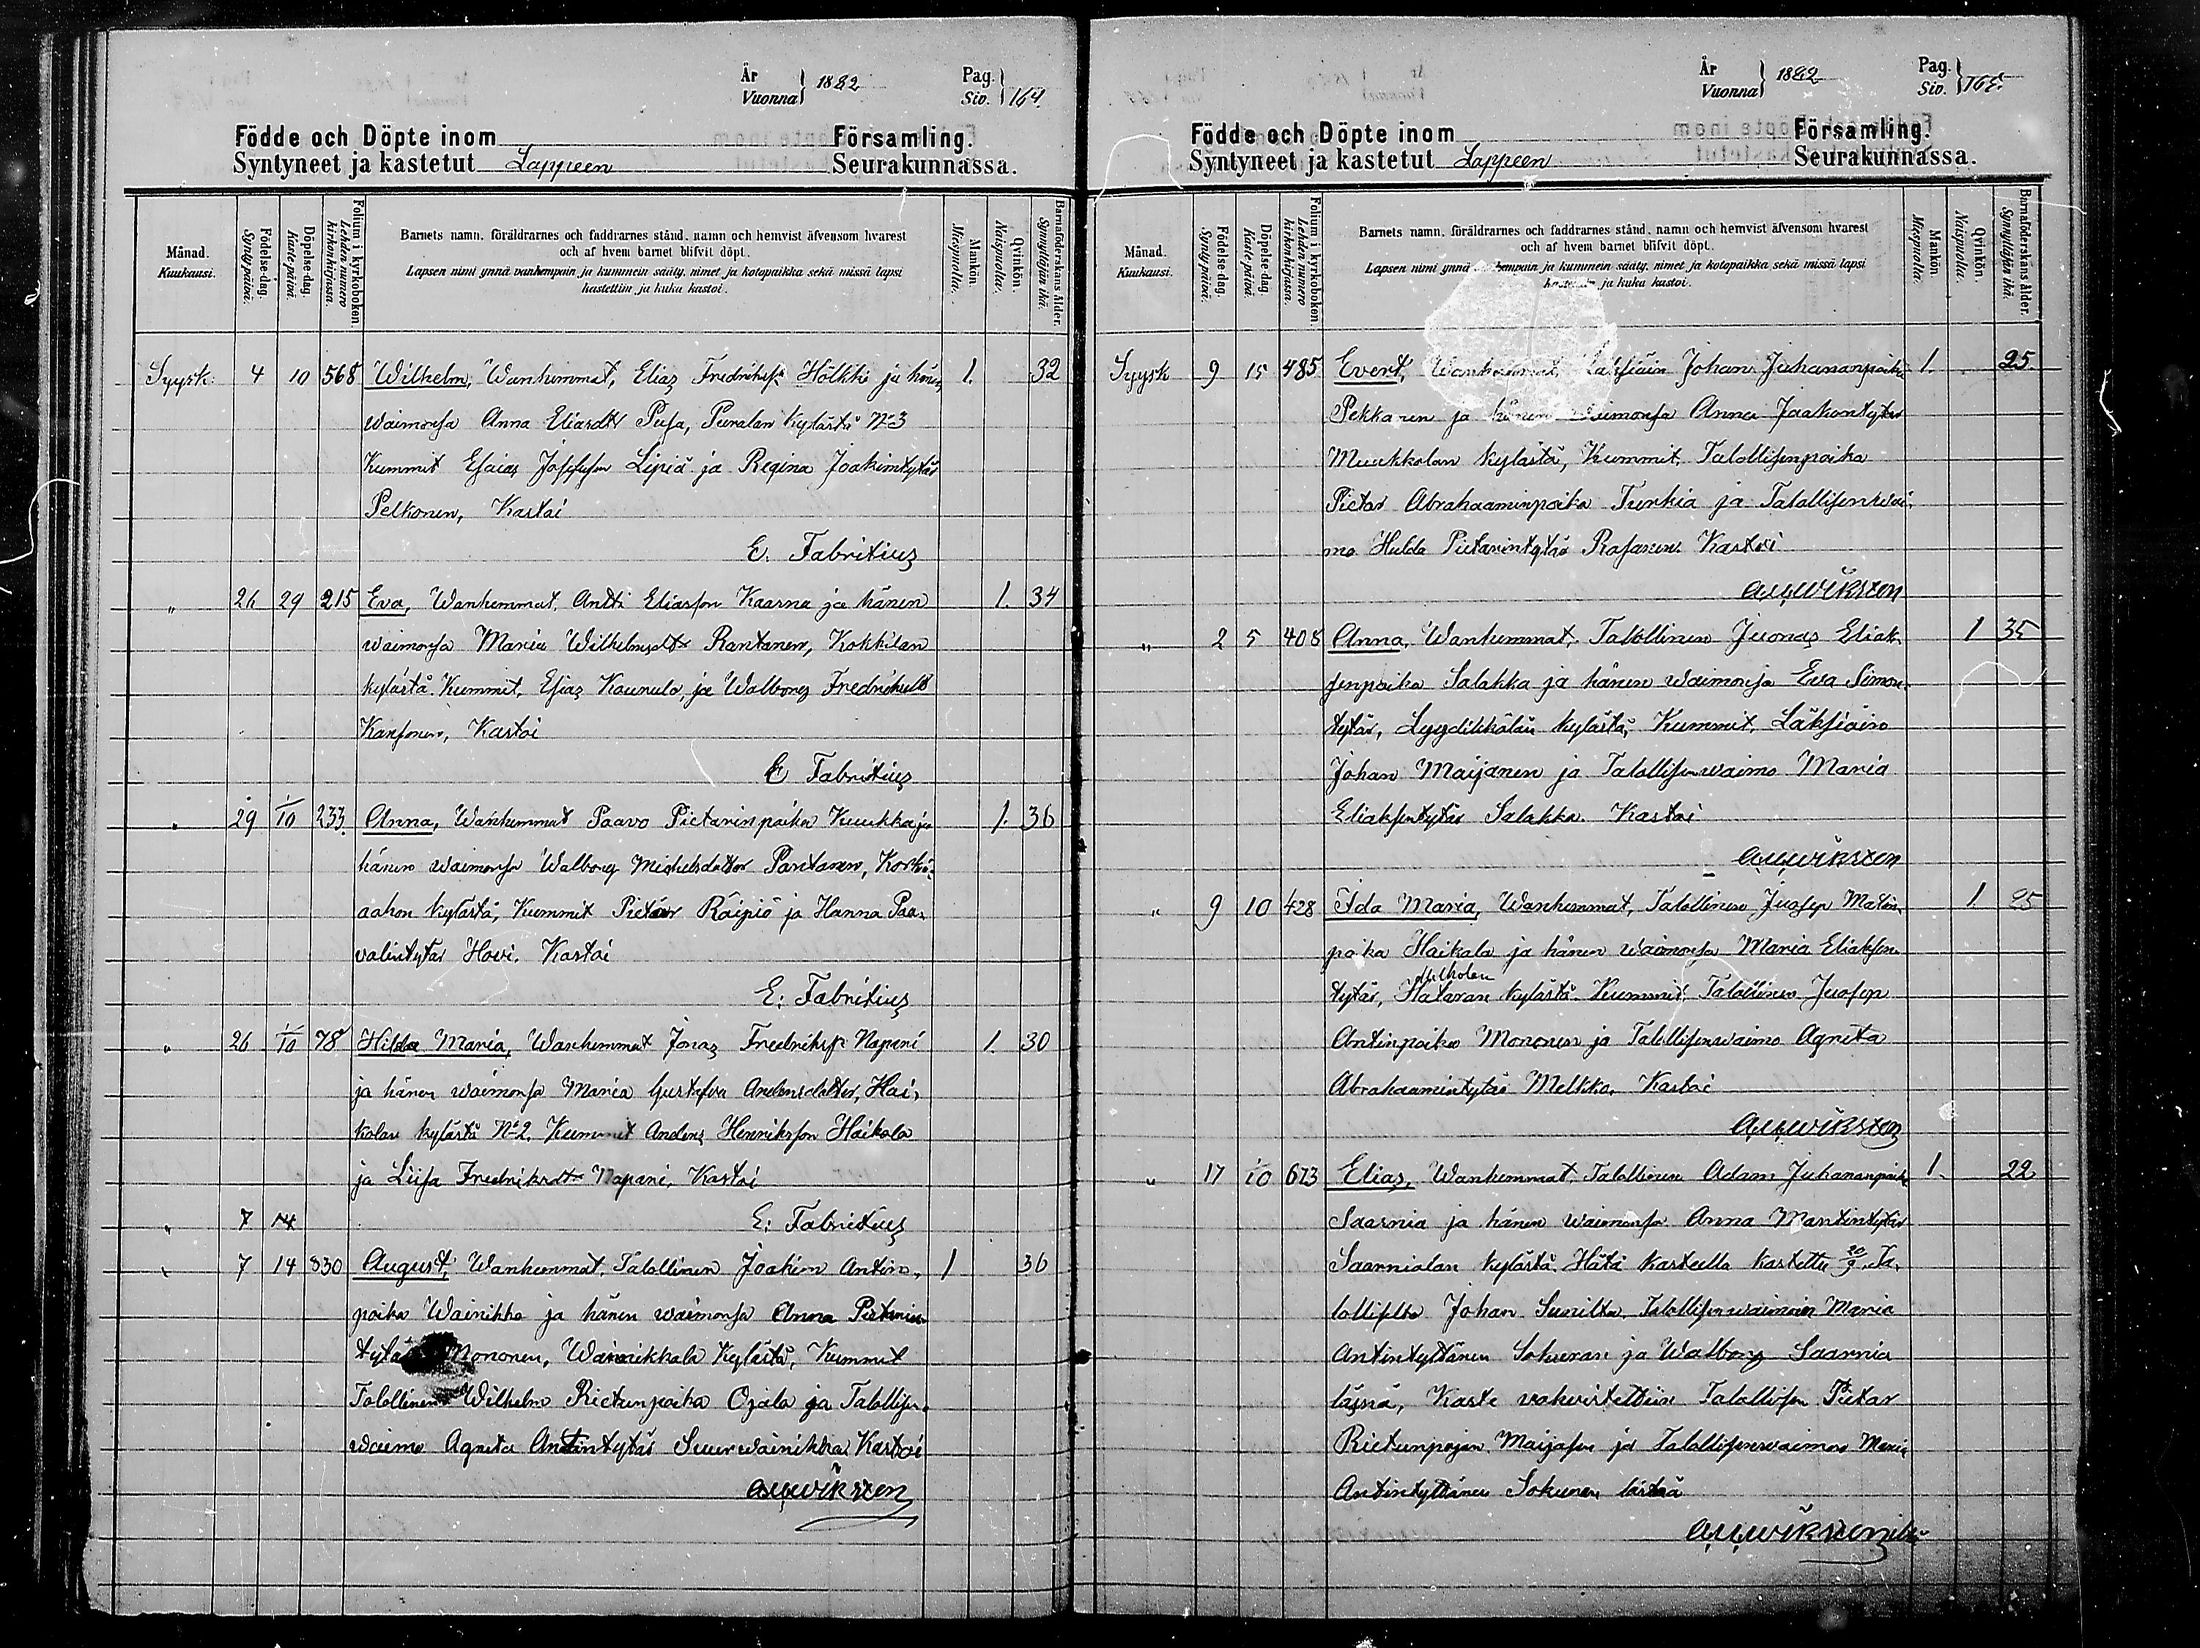 År
Vuonna
1882
Pag.
Siv.
164.
Födde och Döpte inom Församling.
Syntyneet ja kastetut Lappeen Seurakunnassa.
Månad.
Kuukausi.
Födelse-dag.
Syntypäivä.
Döpelse-dag.
Kaste-päivä.
Folium i kyrkoboken.
Lehden numero kirkonkirjassa.
Barnets namn, föräldrarnes och faddrarnes stånd, namn och hemvist äfvensom hvarest
och af hvem barnet blifvit döpt.
Lapsen nimi ynnä vanhempain ja kummein sääty, nimet ja kotopaikka sekä missä lapsi
kastettiin ja kuka kastoi.
Mankön.
Miespuolta.
Qvinkön.
Naispuolta.
Barnaföderskans ålder.
Synnyttäjän ikä.
Syysk. 4 10 568 Wilhelm, Wanhemmat, Elias Fredriksp. Hölkki ja hänen 1. 32
waimonsa Anna Eliasdtr Pusa, Puralan kylästä No 3
Kummit Esaias Josefsson Lipiä ja Regina Joakimtytär
Pelkonen, Kastoi
E. Fabritius
" 26 29 215 Eva, Wanhemmat, Antti Eliasson Kaarna ja hänen 1. 34
waimonsa Maria Wilhelmsdtr Rantanen, Kokkilan
kylästä. Kummit, Esias Kaunula, ja Walborg Fredriksd
Kansonen, Kastoi
E Fabritius
" 29 1/10 233. Anna, Wanhemmat Paavo Pietarinpoika Kuukka ja 1. 36
hänen waimonsa Walborg Michelsdotter Pantanen, Korkia
aahon kylästä, Kummit Pietar Räipiö ja Hanna Paa
valintytär Hovi. Kastoi
E: Fabritius
" 26 1/10 78 Hilda Maria, Wanhemmat Jonas Fredriksp Napani 1. 30
ja hänen waimonsa Maria Gustafva Andersdotter, Hai
kolan kylästä No 2. Kummit Anders Henriksson Haikala
ja Liisa Fredriksdtr Napani, Kastoi
" 7 14 E: Fabritius
" 7 14 830 August, Wanhemmat, Talollinen Joakim Antin 1 36
poika Wainikka ja hänen waimonsa Anna Pietarin
tytär Mononen, Wainikkala Kylästä, Kummit
Talollinen Wilhelm Rietunpoika Ojala ja Talollisen
waimo Agneta Antintytär Suurwainikka Kastoi
Aug Wiksten
År
Vuonna
1882
Pag.
Siv.
165.
Födde och Döpte inom Församling.
Syntyneet ja kastetut Lappeen Seurakunnassa.
Månad.
Kuukausi.
Födelse-dag.
Syntypäivä.
Döpelse-dag.
Kaste-päivä.
Folium i kyrkoboken.
Lehden numero kirkonkirjassa.
Barnets namn, föräldrarnes och faddrarnes stånd, namn och hemvist äfvensom hvarest
och af hvem barnet blifvit döpt.
Lapsen nimi ynnä vanhempain ja kummein sääty, nimet ja kotopaikka sekä missä lapsi
kastettiin ja kuka kastoi.
Mankön.
Miespuolta.
Qvinkön.
Naispuolta.
Barnaföderskans ålder.
Synnyttäjän ikä.
Syysk 9 15 485 Evert, Wanhemmat, Läksiäin Johan Juhananpoika 1. 25.
Pekkanen ja hänen waimonsa Anna Jaakontytär
Muukkolan kylästä, Kummit, Talollisenpoika
Pietar Abrahaaminpoika Turkia ja Talollisenwai
mo Hulda Pietarintytär Rasanen. Kastoi
Aug Wiksten
" 2 5 408 Anna, Wanhemmat, Talollinen Juonas Eliak
senpoika Salakka ja hänen waimonsa Eva Simon
tytär, Lyydikkälän kylästä, Kummit, Läksiäin
Johan Maijanen ja Talollisenwaimo Maria
Eliaksentytär Salakka. Kastoi
Aug Wiksten
" 9 10 428 Ida Maria, Wanhemmat, Talollinen Juosep Matin 1. 25
poika Haikala ja hänen waimonsa Maria Eliaksen
tytär, Hataran kylästä. Kummit, Talollinen Juosep
Antinpoika Mononen ja Talollisenwaimo Agneta
Abrahaamintytär Melkko. Kastoi
Aug Wiksten
" 17 1/10 673 Elias, Wanhemmat, Talollinen Adam Juhananpoika 1. 22
Saarnia ja hänen waimonsa Anna Martintytär
Saarnialan kylästä. Hätä kasteella kastettu 20/9 Ta
lolliselta Johan Sunilta Talollisenwaimoin Maria
Antintyttären Sokuran ja Walborg Saarnia
läsnä, Kaste vahvistettiin Talollisen Pietar
Rietunpojan Maijasen ja Talollisenwaimon Maria
Antintyttären Sokunen läsnä
Aug Wiksteniltä